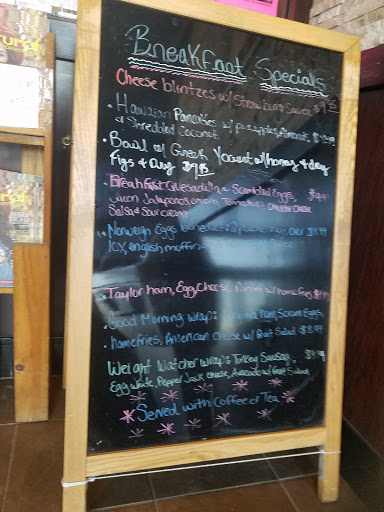 Breakfast Specials
Cheese blintzes w/ Strawberry Sauce $9.95
Hawaiian Pancakes w/ pineapples, Almonds
& Shredded Coconut
Bowl w/ Greek Yogurt w/ honey & dry
Figs & $9.95
Breakfast Quesadilla Scrambled Eggs,
Jalapenos, onions, Tomatoes, Cheddar Cheese
Salsa & Sour cream
Eggs Benedict: 2 over
lox, english muffin
Taylor ham, Egg, Cheese Panini w/ home fries
Good Morning Wrap: Ham, Scram Eggs,
homefries, American Cheese w/ Fruit Salad
Weight Watcher Wrap: Turkey Sausage,
Egg White, Pepper Jack cheese, Avocado w/ Fruit Salad
Served with Coffee or Tea